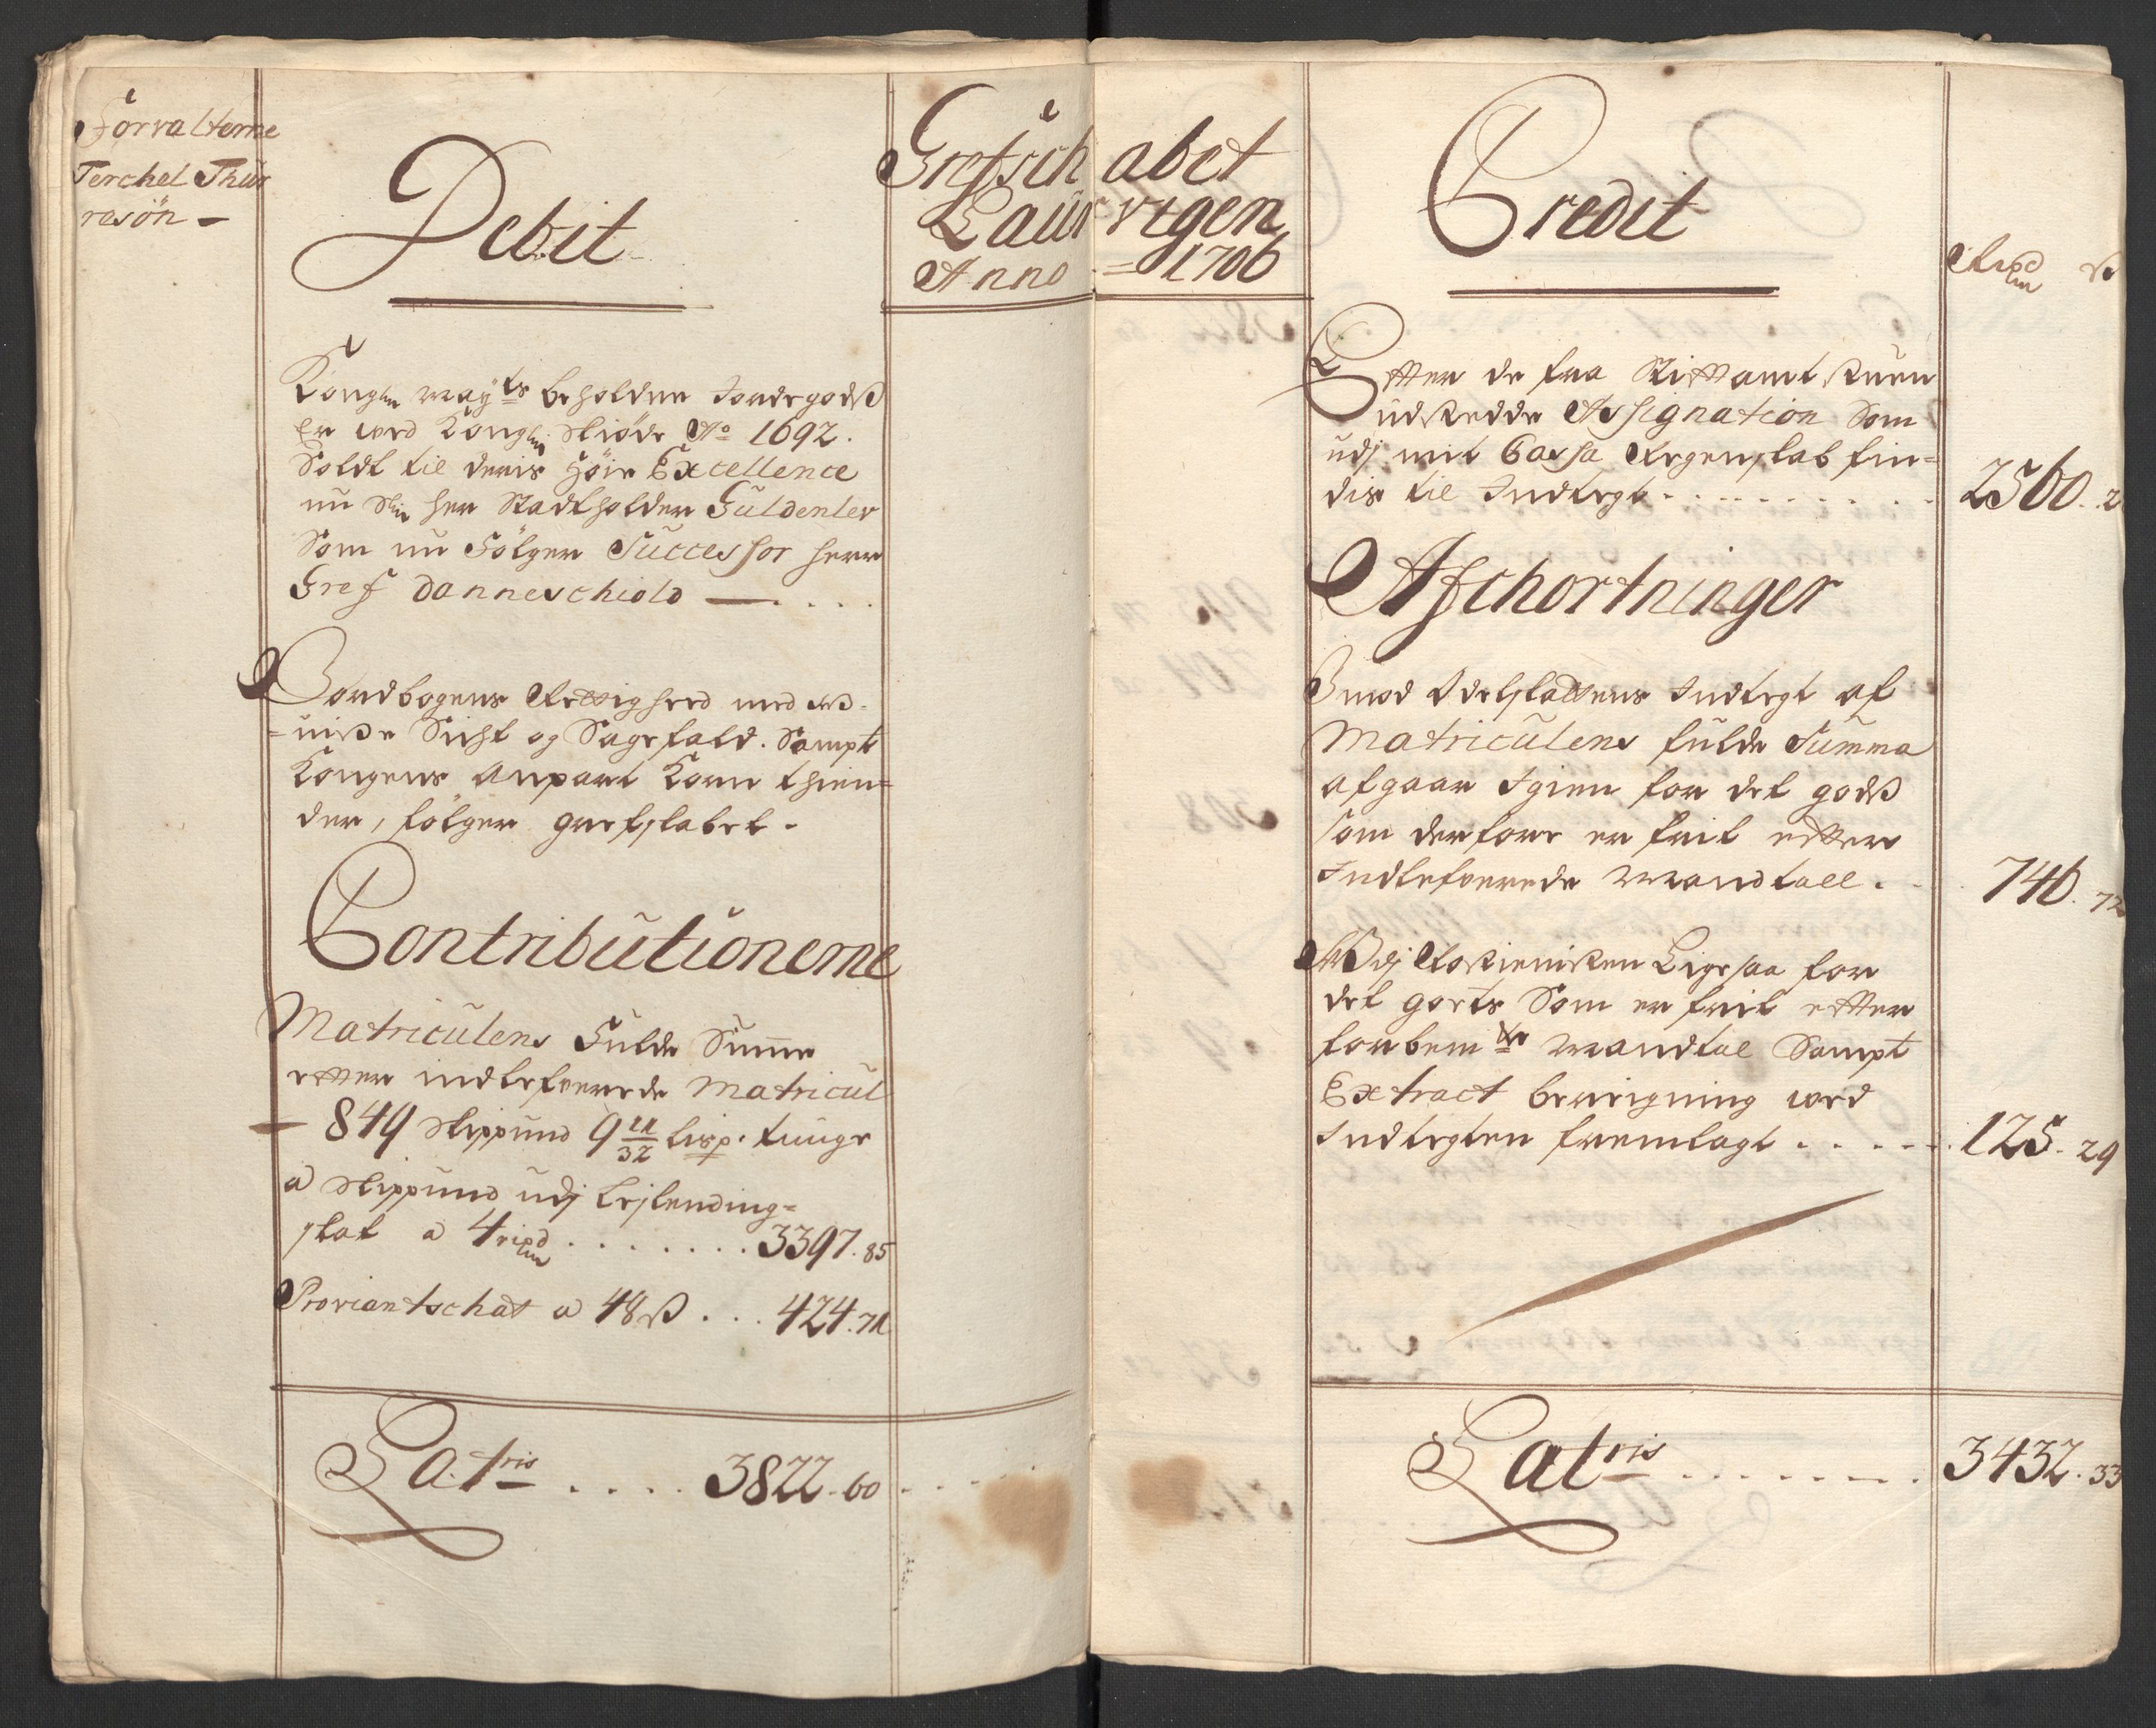 Forvalterne
Terchel Thue
resön
Debit
Grefschabet
Laurvigen
Anno = 1706
Kongln Mayts beholdne Jordegods
er ved Kongln Skiöde Ao 1692.
Soldt til deris Höie Excellence
nu Sln her Stadtholder Güldenlev
Som nu Fölger Successor herr
Gref Danneschiold
Jordbogens Rettighed med u
visse Sicht og Sagefald. Sampt
Kongens Anpart Korn thien=
der, fölger grefskabet.
Contributionerne
Matriculens Fulde Summe
efter indlefverede Matricul
849 Skippund 9 11/32 lisp: tunge
a Skippund udj Lejlending=
skat a 4 rixd . . . . . . . 3397.85
Proviantschat a 48 ß . . . 424.71
Latris . . . . 3822.60
Credit
Rixd ß
Efter de fra Stiftamtskuen
udstedde Assignation Som
udj mit Cassa Regenskab fin=
dis til Indtegt . . . . . . . 2560. 2
Afchortninger
Imod Odelskattens Indtegt af
Matriculens fulde Summa
afgaar Igien for det gods
som derfore er frit efter
Indlefverede Mandtall . . 746. 72
Udj Rostienisten Ligesaa for
det gorts Som er frit efter
forbemte Mandtal Sampt
Extract bevigning ved
Indtegten fremlagt . . . . . 125. 29
Latris . . . . . . . 3432. 33